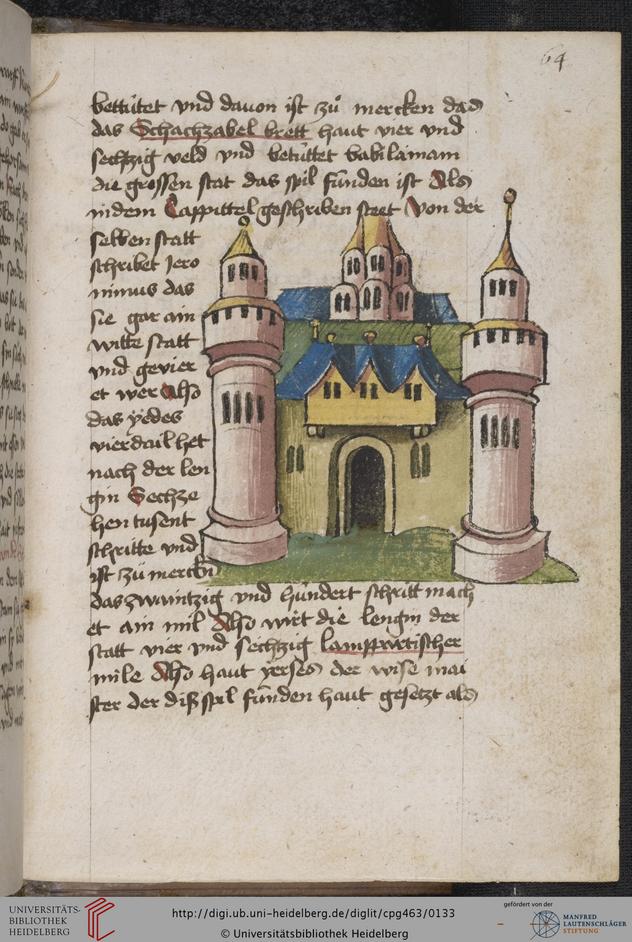 64
bettútet vnd dauon ist zů mercken das
das Schachzabel brett haut vier vnd
sechszig veld vnd betúttet babilaniam
die grossen stat das spil funden ist Als
indem Cappittel geschriben stett von der
selben statt
schribet Jero
nimus das
sie gar ain
witte statt
vnd gevier
et wer Also
das yedes
vierdail het
nach der len
gin Sechze
hen tusent
schritte vnd
ist zů mercken
das zwaintzig vnd hundert schritt mach
et ain mil Also wirt die lengin der
statt vier vnd sechzig lamppartischer
mile Also haut yerses der wise mai
ster der diß spil funden haut gesetzt als
UNIVERSITÄTS-
BIBLIOTHEK
HEIDELBERG
http://digi.ub.uni-heidelberg.de/diglit/cpg463/0133
© Universitätsbibliothek Heidelberg
gefördert von der
MANFRED
LAUTENSCHLÄGER
STIFTUNG